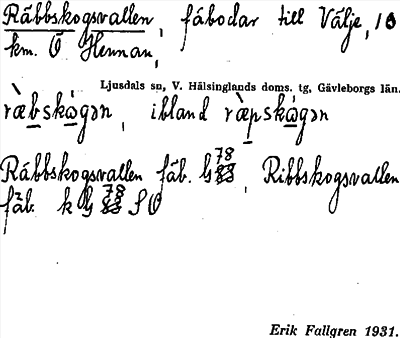 Räbbskogsvallen, fäbodar till Välje, 10
km. Ö Hennan,
Ljusdals sn, V. Hälsinglands doms. tg, Gävleborgs län.
ræ̀bskὼgən, ibland ræ̀pskὼgən
Räbbskogsvallen fäb. G 78, Ribbskogsvallen
fäb. k G 78 SO
Erik Fallgren 1931.